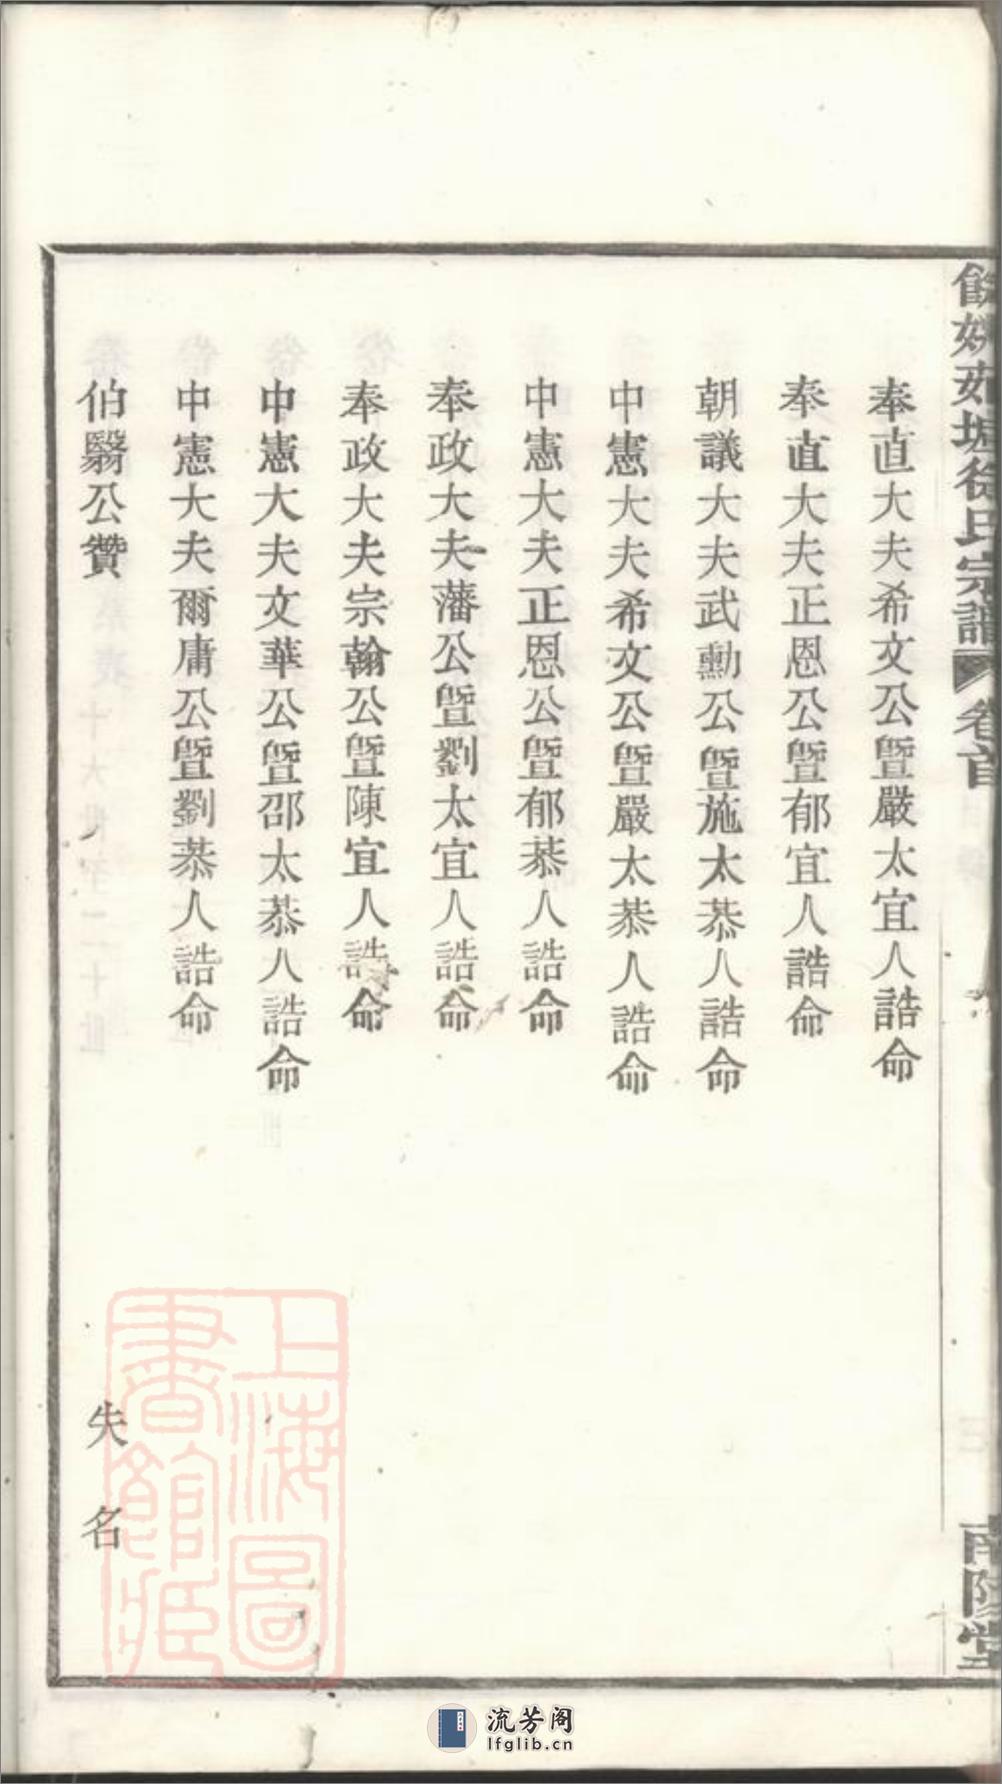 餘姚茹塘徐氏宗譜 卷首
南陵堂
奉直大夫希文公曁嚴太宜人誥命
奉直大夫正恩公曁郁宜人誥命
朝議大夫武勳公曁施太恭人誥命
中憲大夫希文公曁嚴太恭人誥命
中憲大夫正恩公曁郁恭人誥命
奉政大夫藩公曁劉太宜人誥命
奉政大夫宗翰公曁陳宜人誥命
中憲大夫文華公曁邵太恭人誥命
中憲大夫爾庸公曁劉恭人誥命
伯翳公贊 失名
上海圖書館藏
流芳阁
lfglib.cn